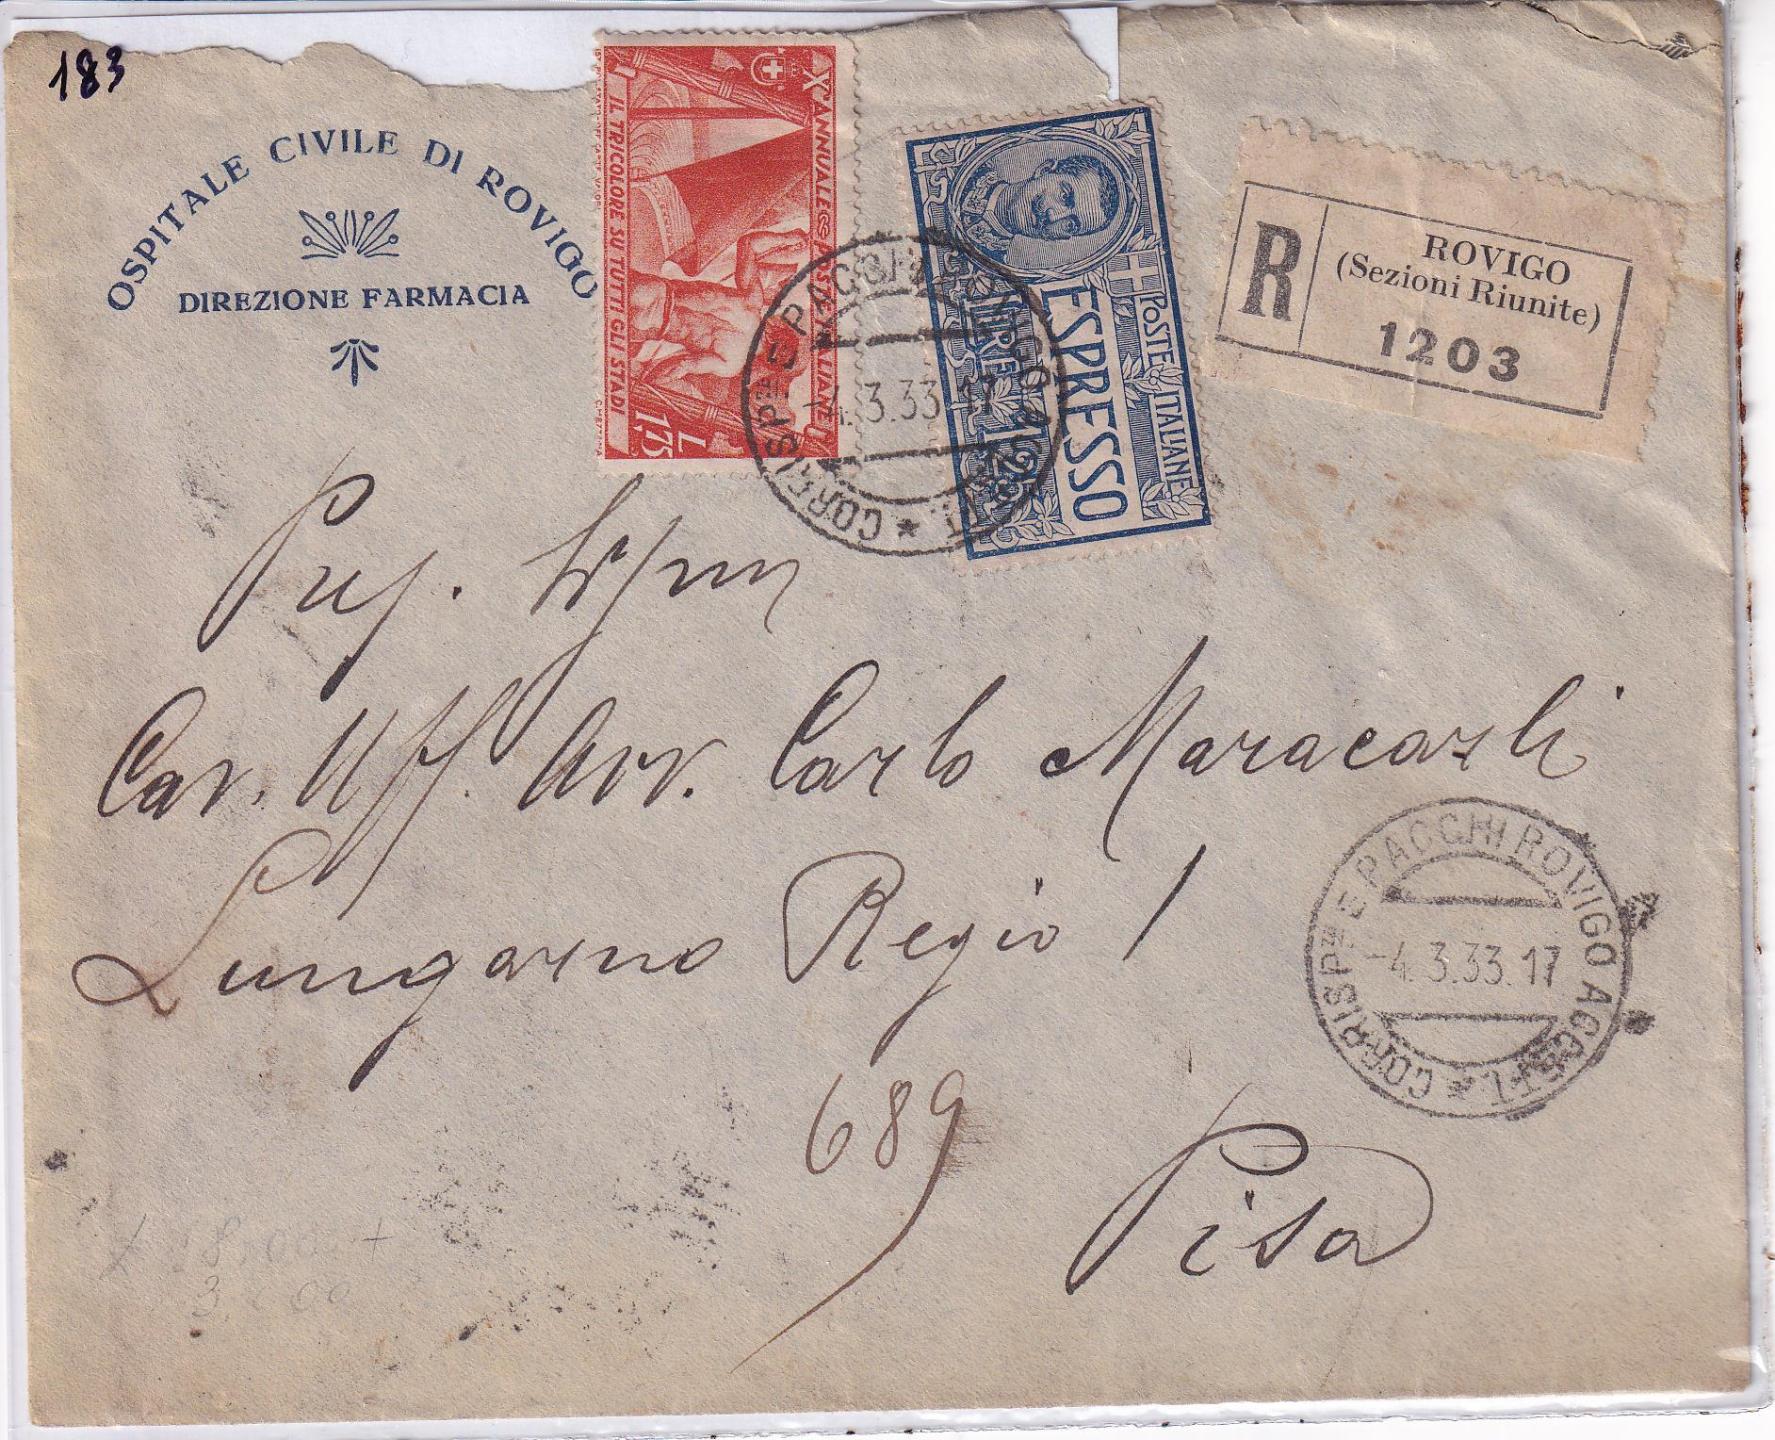 183
OSPITALE CIVILE DI ROVIGO
DIREZIONE FARMACIA
X ANNUALE POSTE ITALIANE
IL TRICOLORE SU TUTTI GLI STADI
L. 1,75
POSTE ITALIANE
ESPRESSO
LIRE 1,25
CORRISP.ZE E PACCHI ROVIGO
-4.3.33.17
R
ROVIGO
(Sezioni Riunite)
1203
Cav. Uff. Avv. Carlo
Lungarno Regio 1
689
Pisa
CORRISP.ZE E PACCHI ROVIGO
-4.3.33.17